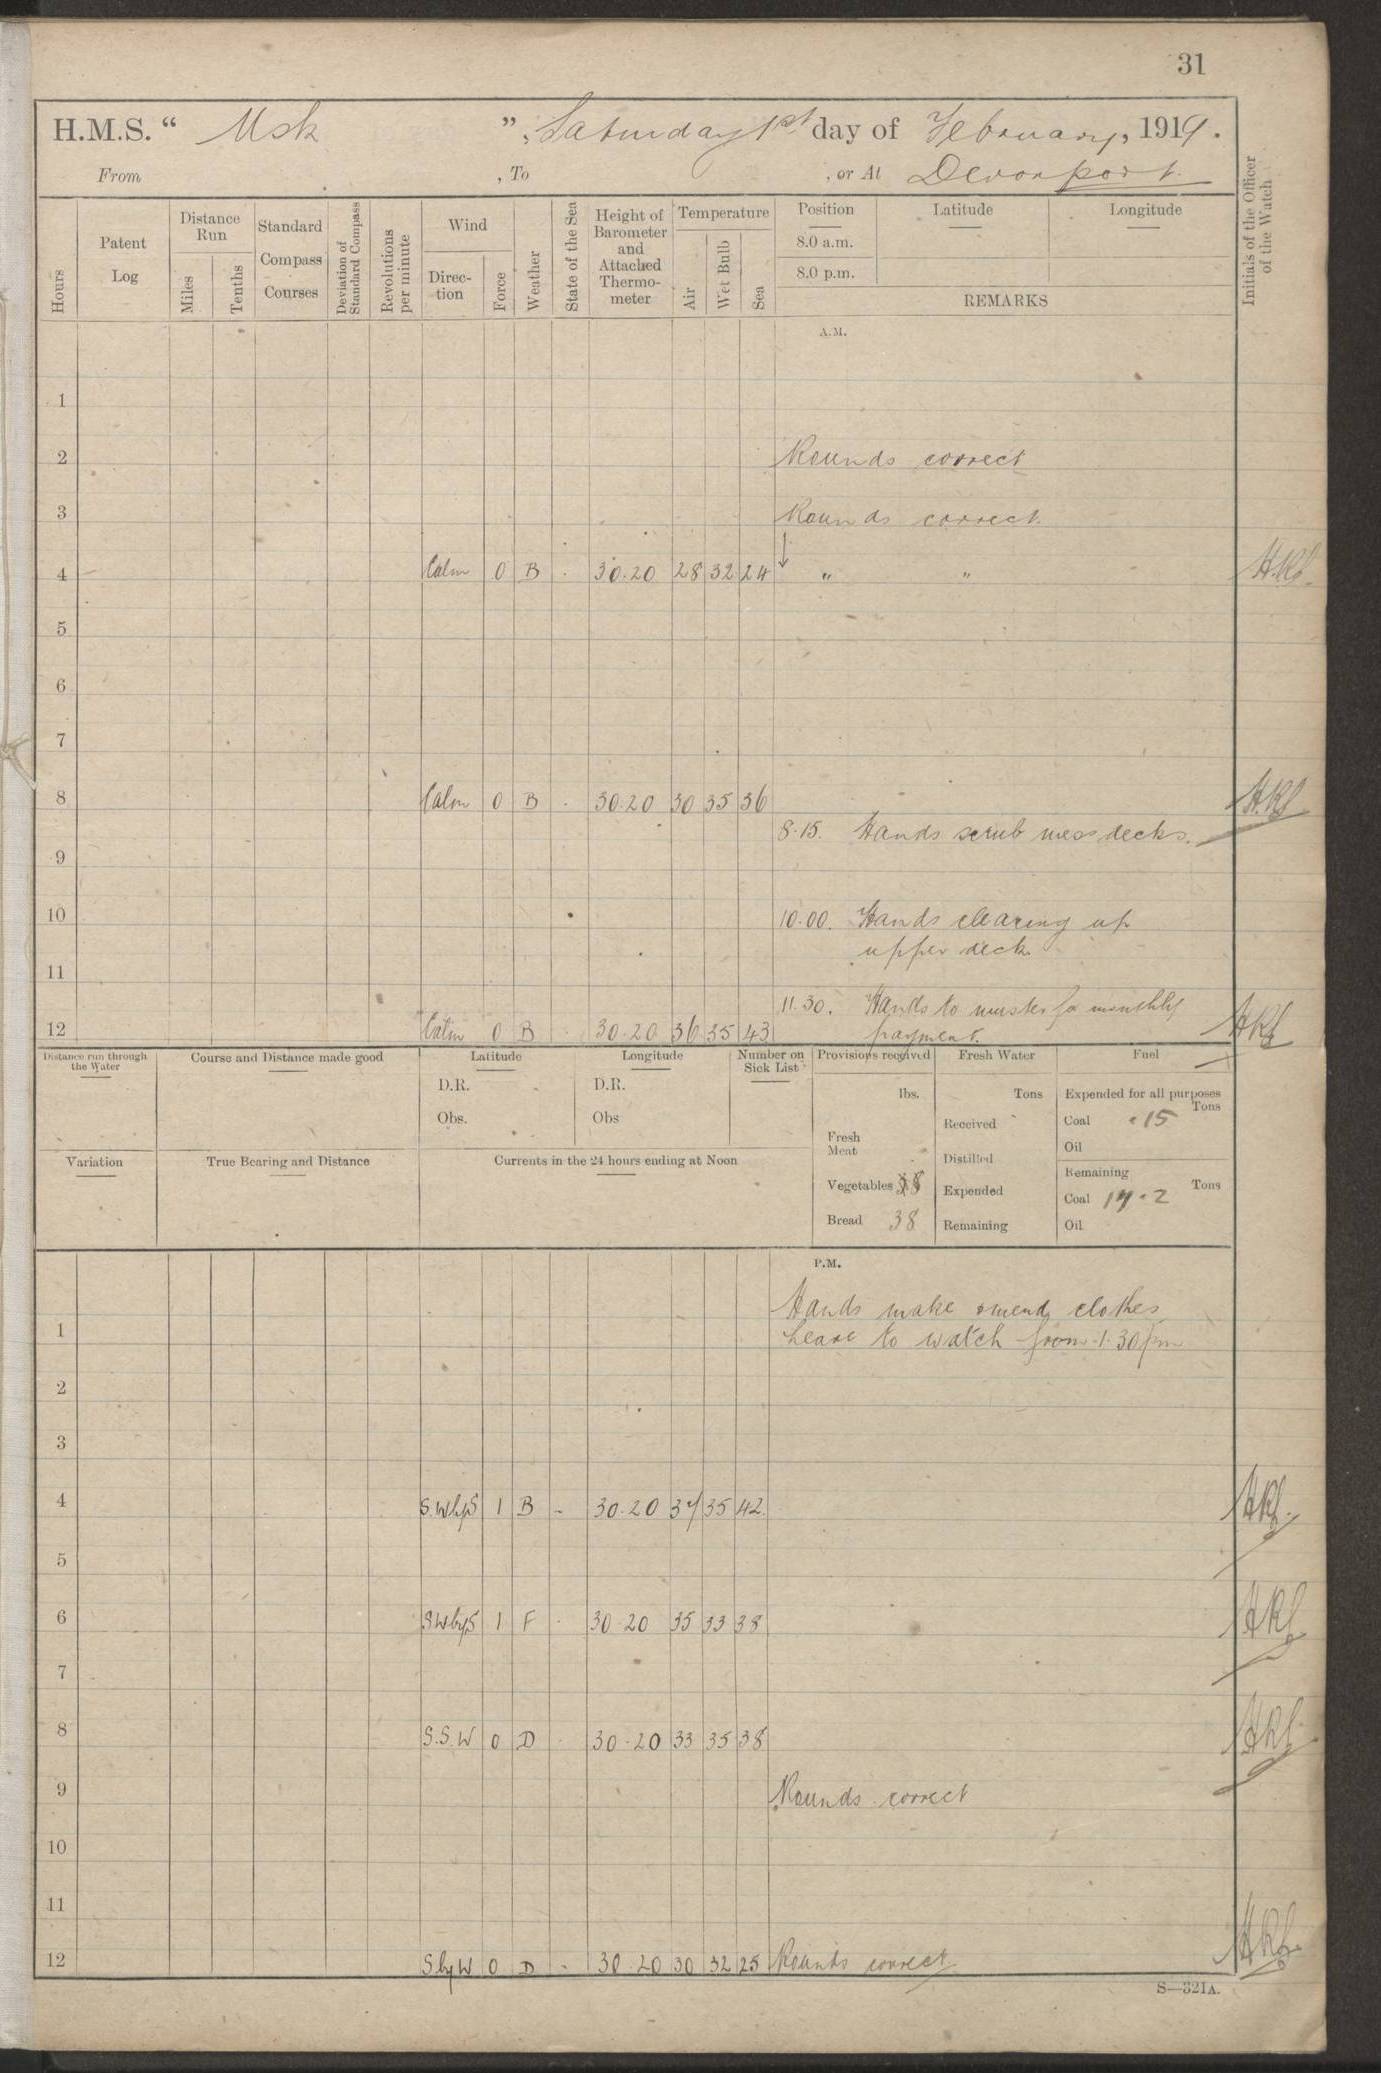 31
H.M.S. “ Usk ”, Saturday 1st day of February, 1919.
From , To , or At Devonport.
Hours
Patent Log
Distance Run
Miles
Tenths
Standard Compass Courses
Deviation of Standard Compass
Revolutions per minute
Wind
Direction
Force
Weather
State of the Sea
Height of Barometer and Attached Thermometer
Temperature
Air
Wet Bulb
Sea
Position
8.0 a.m.
8.0 p.m.
Latitude
Longitude
REMARKS
Initials of the Officer of the Watch
A.M.
1
2 Rounds correct
3 Rounds correct.
4 Calm 0 B . 30.20 28 32 24 ↓ „ „
5
6
7
8 Calm 0 B . 30.20 30 35 36
8.15. Hands scrub mess decks.
9
10 10.00. Hands clearing up
upper deck.
11
11.30. Hands to muster for monthly
12 Calm 0 B . 30.20 36 35 43 payment.
Distance run through the Water
Course and Distance made good
Latitude
D.R.
Obs.
Longitude
D.R.
Obs
Number on Sick List
Provisions received
lbs.
Fresh Meat
Vegetables
Bread 38
Fresh Water
Tons
Received
Distilled
Expended
Remaining
Fuel
Expended for all purposes
Tons
Coal .15
Oil
Remaining
Tons
Coal 14.2
Oil
Variation
True Bearing and Distance
Currents in the 24 hours ending at Noon
P.M.
Hands make & mend clothes
1 Leave to watch from 1.30 pm
2
3
4 S.W by S 1 B - 30.20 37 35 42
5
6 SW by S 1 F . 30.20 35 33 38
7
8 S.S.W 0 D . 30.20 33 35 38
9 Rounds correct
10
11
12 S by W 0 D - 30.20 30 32 25 Rounds correct
S—321A.